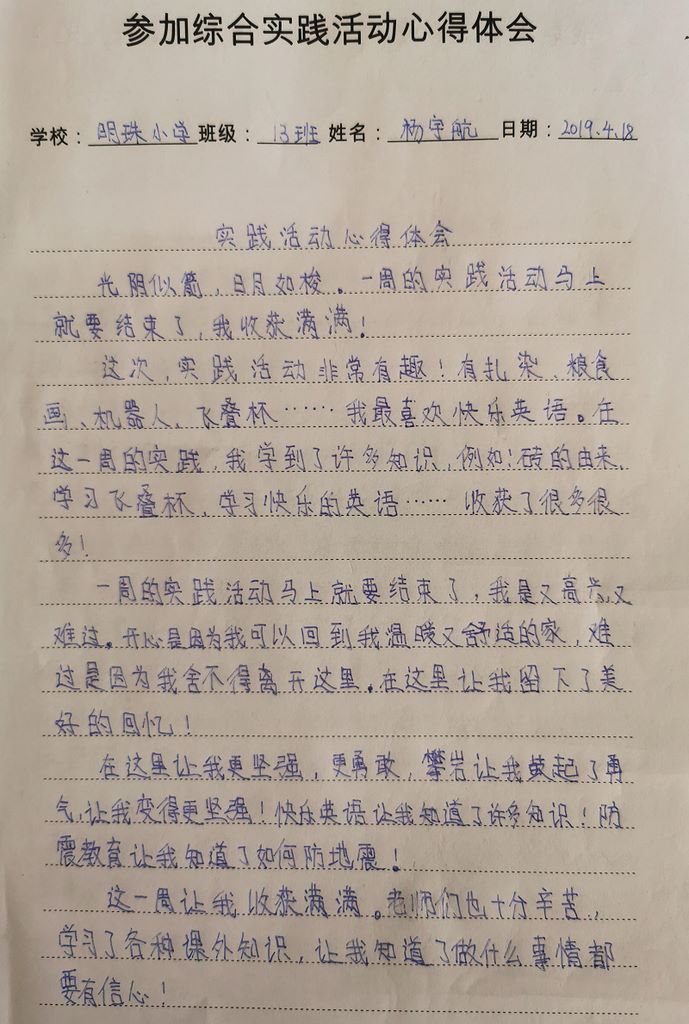 参加综合实践活动心得体会
学校：明珠小学 班级：13班 姓名：杨宇航 日期：2019.4.18
实践活动心得体会
光阴似箭，日月如梭。一周的实践活动马上
就要结束了，我收获满满！
这次，实践活动非常有趣！有扎染、粮食
画、机器人、飞叠杯……我最喜欢快乐英语。在
这一周的实践，我学到了许多知识，例如：砖的由来，
学习飞叠杯，学习快乐的英语……收获了很多很
多！
一周的实践活动马上就要结束了，我是又高兴又
难过。开心是因为我可以回到我温暖又舒适的家，难
过是因为我舍不得离开这里。在这里让我留下了美
好的回忆！
在这里让我更坚强，更勇敢，攀岩让我鼓起了勇
气，让我变得更坚强！快乐英语让我知道了许多知识！防
震教育让我知道了如何防地震！
这一周让我收获满满。老师们也十分辛苦，
学习了各种课外知识，让我知道了做什么事情都
要有信心！